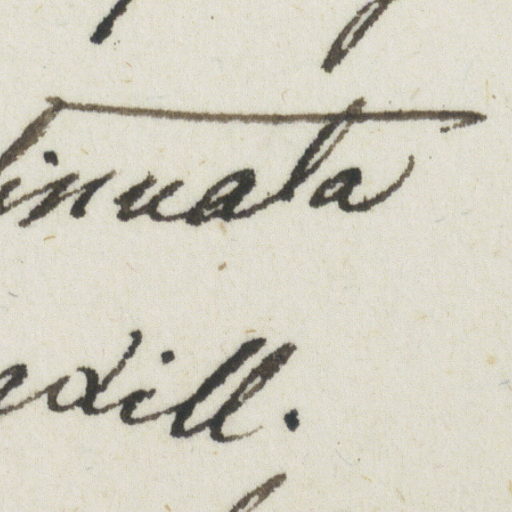 tinuata
dill.